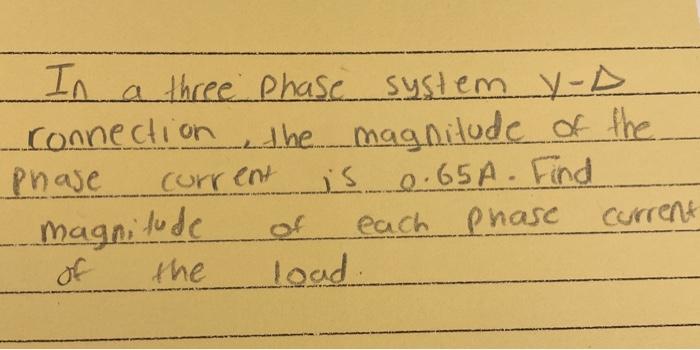 In a three phase system Y-Δ
connection, the magnitude of the
phase current is 0.65A. Find
magnitude of each phase current
of the load.